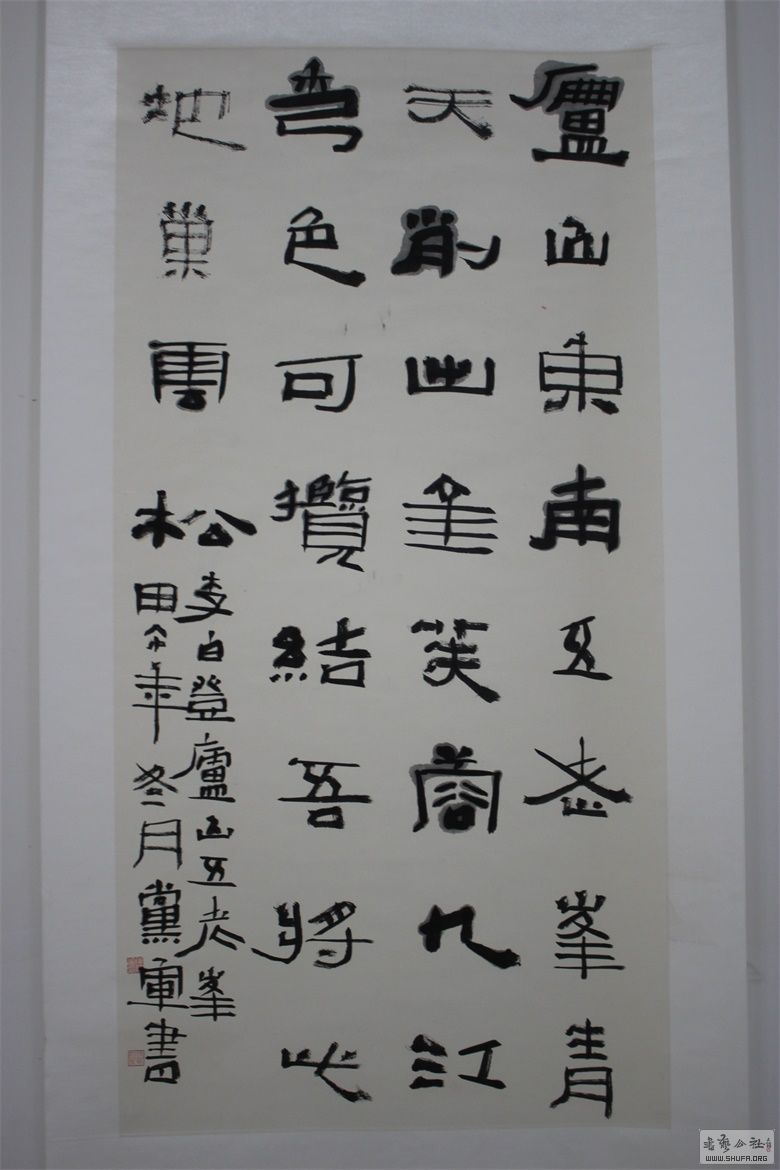 廬山東南五老峯青
天削出金芙蓉九江
秀色可攬結吾將此
地巢雲松
李白登廬山五老峯
甲午年冬月黨軍書
書藝公社
WWW.SHUFA.ORG